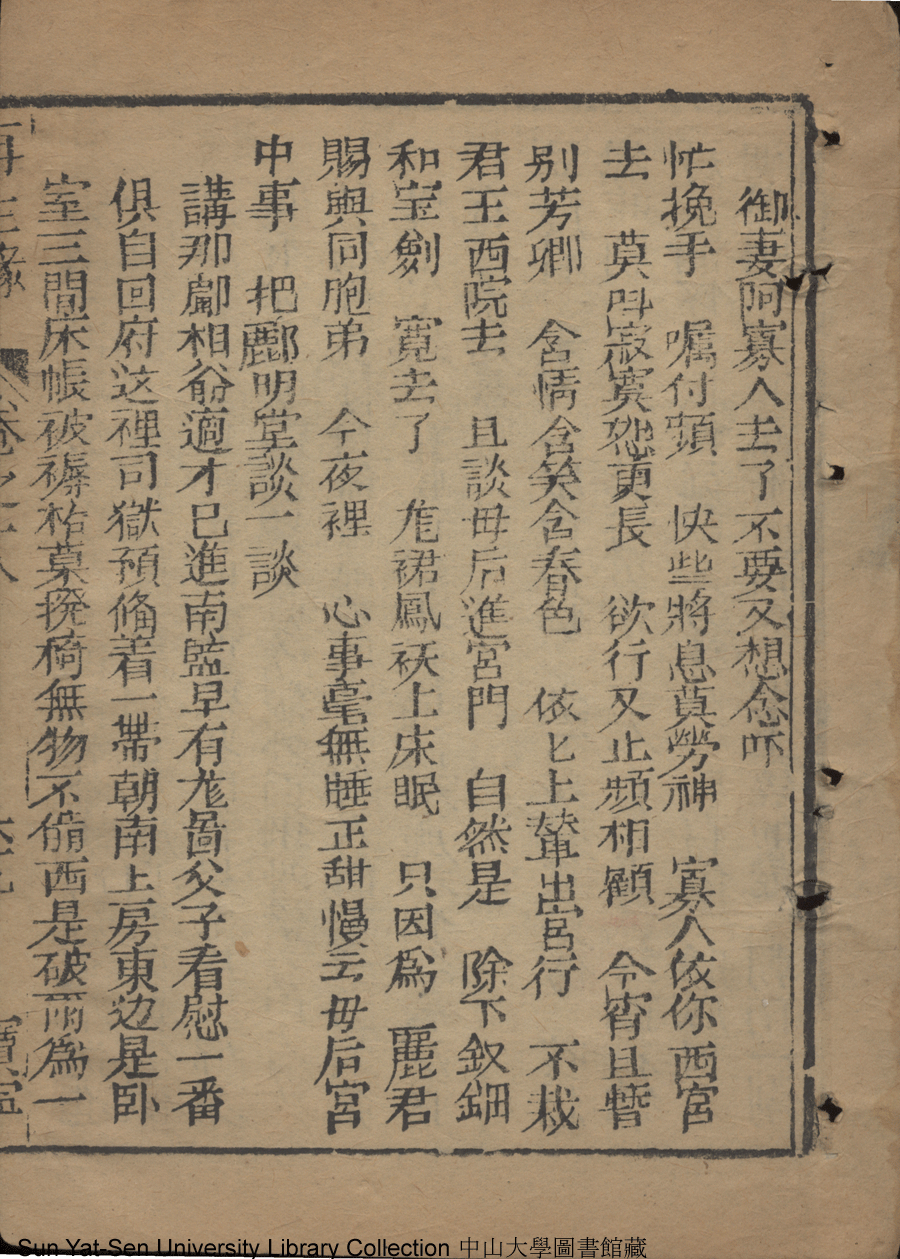 御妻阿寡人去了不要又想念吓
忙挽手 嘱付頻 快些將息莫勞神 寡人依你西宮
去 莫叫寂寞怨更長 欲行又止頻相顧 今宵且暫
别芳卿 含情含笑含春色 依匕上輦出宮行 不栽
君王西院去 且談毋后進宮門 自然是 除下釵鈿
和宝劍 寬去了 尨裙鳳袄上床眠 只因爲 麗君
賜與同胞弟 今夜裡 心事毫無睡正甜慢云毋后宮
中事 把酈明堂談一談
講那酈相爺適才已進南監早有尨啚父子看慰一番
俱自回府这裡司獄預俻着一帶朝南上房東边是卧
室三間床帳被褥枯菓掇椅無物不俻西是破而爲一
再生緣 卷之十八
Sun Yat-Sen University Library Collection 中山大學圖書館藏